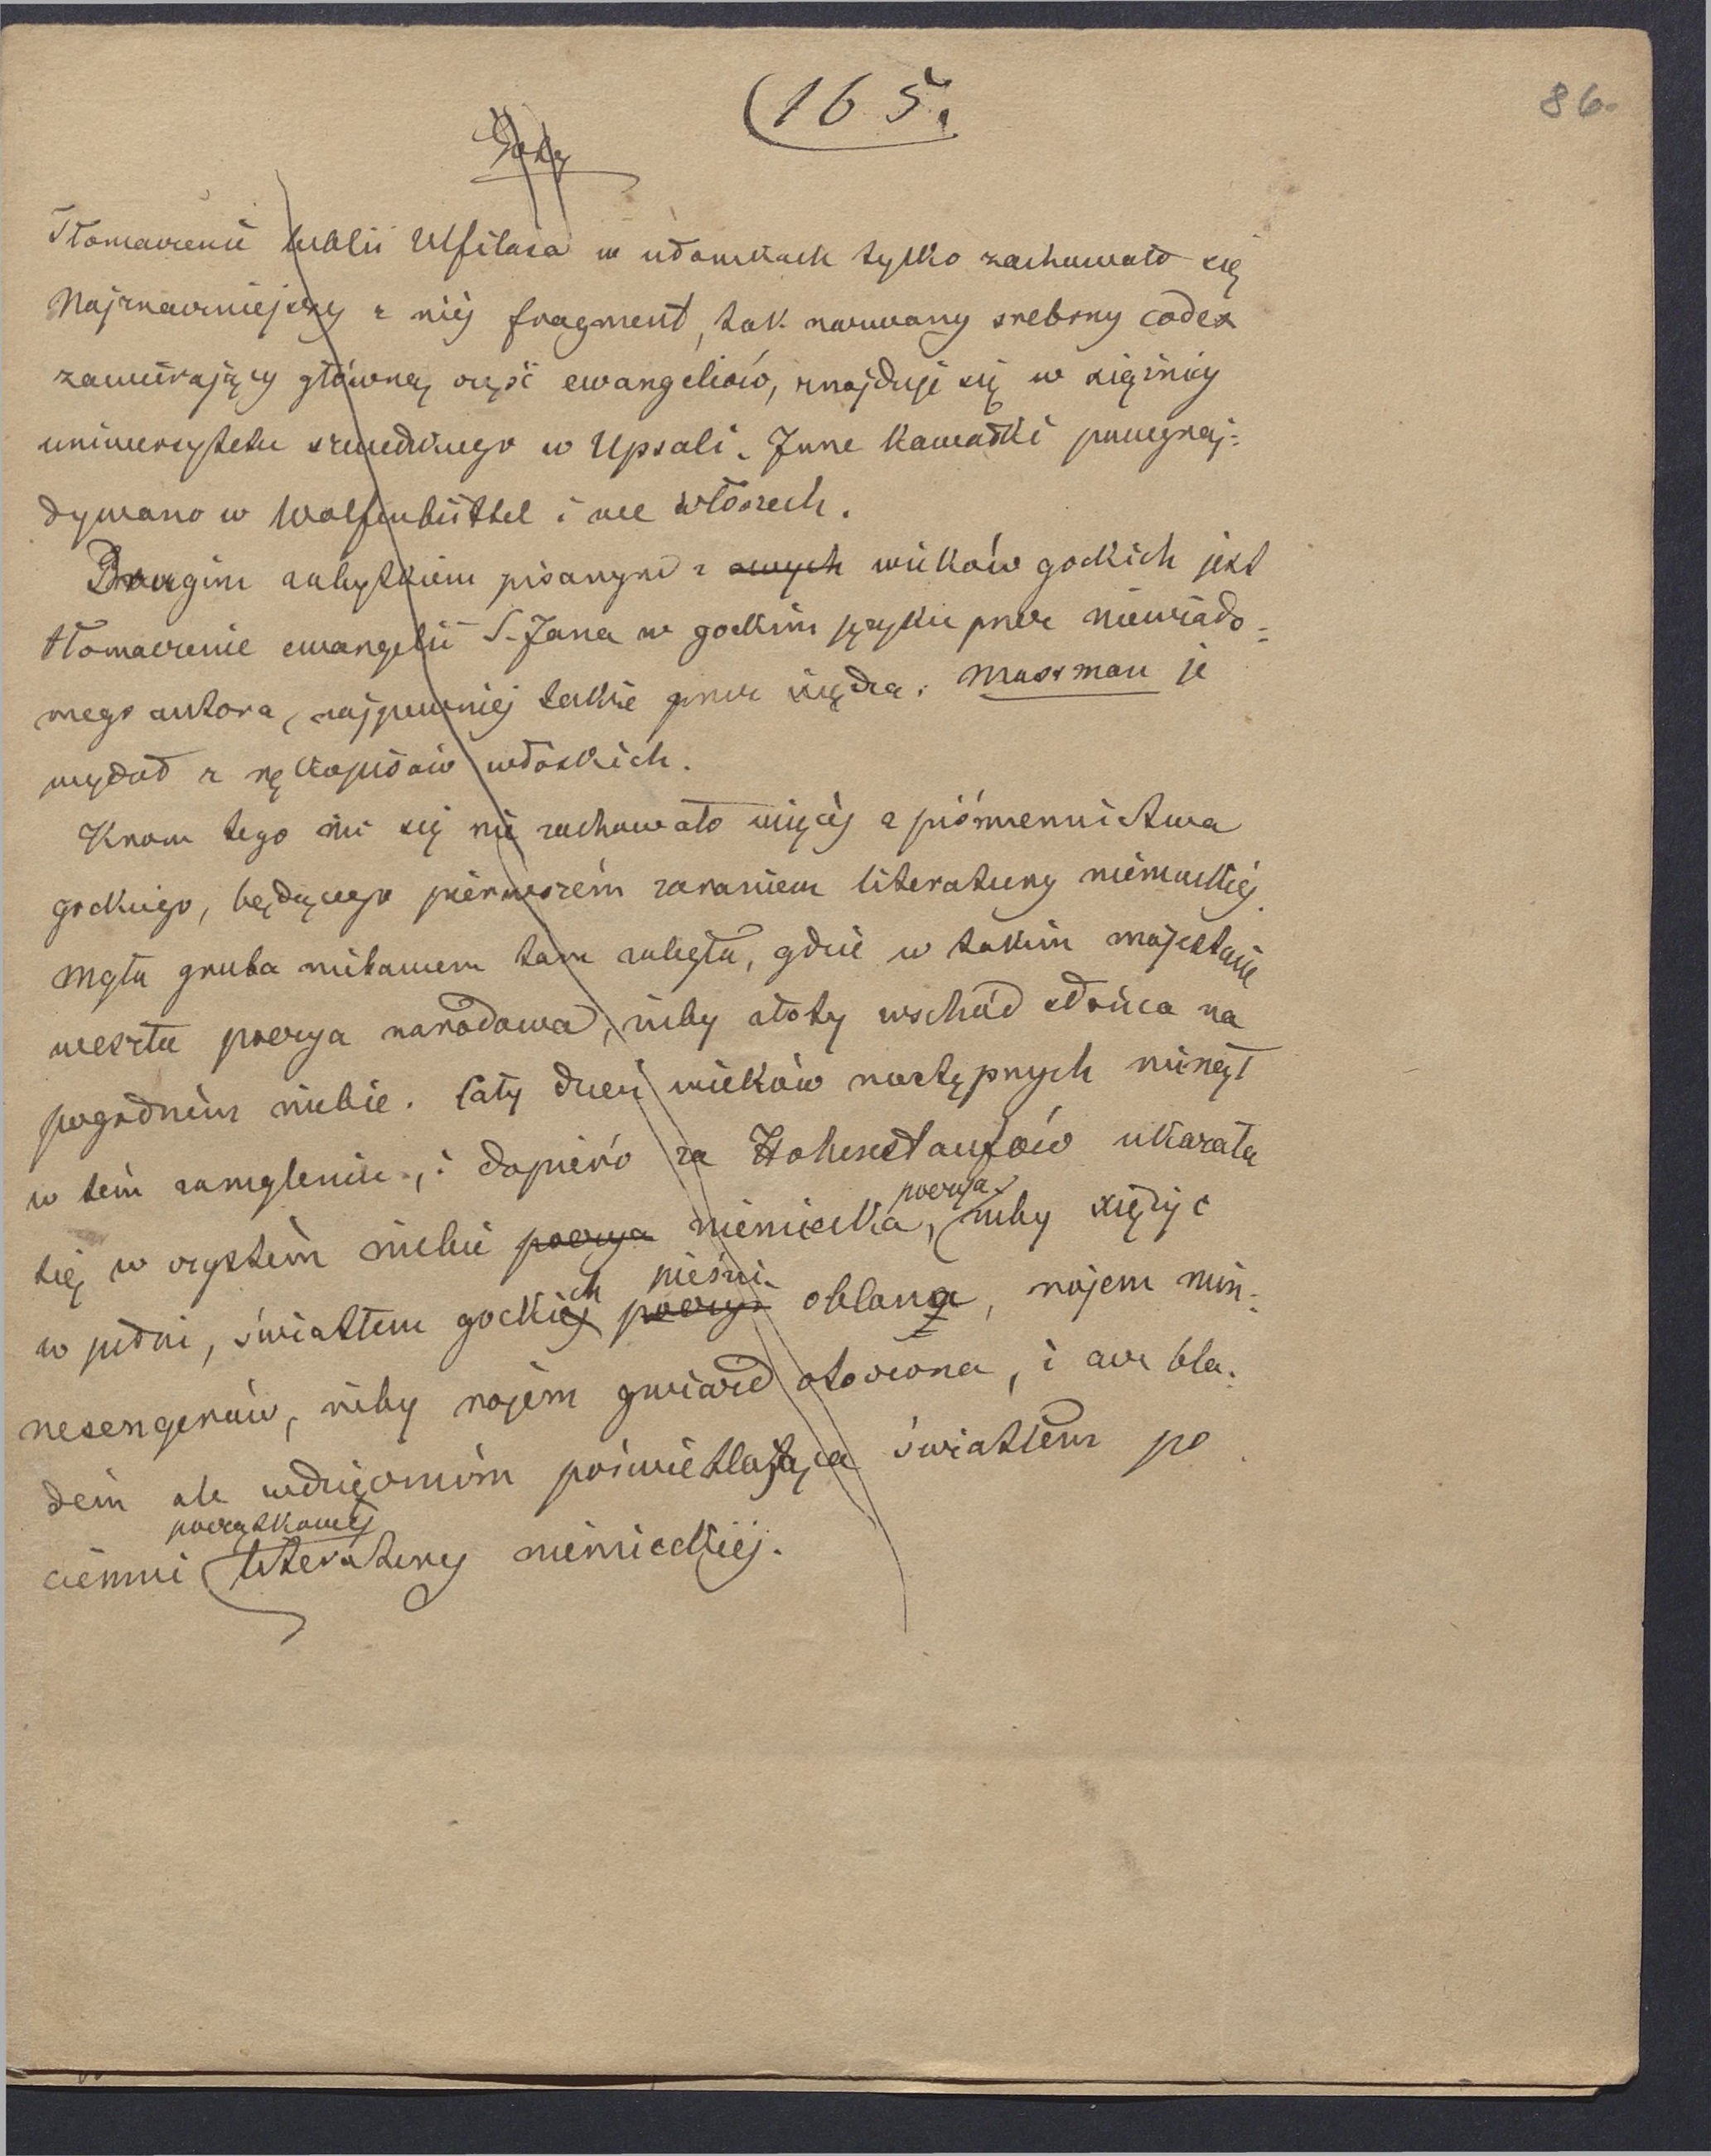 (165.
86.
Goty
Tłomaczenie biblii Ulfilasa w ułomkach tylko zachowało się
Najznaczniejszy z niéj fragment, tak nazwany srebrny codex
zawierający główną część ewangeliów, znajduje się w xiężnicy
uniwersytetu szwedzkiego w Upsali. Inne kawałki poznaj=
dywano w Wolfenbüttel i we Włoszech.
Drugim zabytkiem pisanym z owych wieków gockich jest
tłomaczenie ewangelii S. Jana w gockim języku przez niewiado=
mego autora, najpewniej także przez xiędza. Massman je
wydał z rękopisów włoskich.
Krom tego nic się nie zachowało więcéj z piśmiennictwa
gockiego, będącego pierwszém zaraniem literatury niemieckiéj.
Mgła gruba nitawem tam zaległa, gdzie w takim majestacie
weszła poezya narodowa, niby złoty wschód słońca na
pogodném niebie. Cały dzień wieków następnych minął
w tém zamgleniu, i dopiéro za Hohenstaufów ukazała
się w czystém niebie poezya niemiecka, poezya niby xiężyc
w pełni, światłem gockich pieśni poezyi oblana, rojem min=
nesengerów, niby rojém gwiazd otoczona, i acz bla=
dém ale wdzięczném poświetlająca światłem po
ciemni początkowéj literatury niemieckiéj.